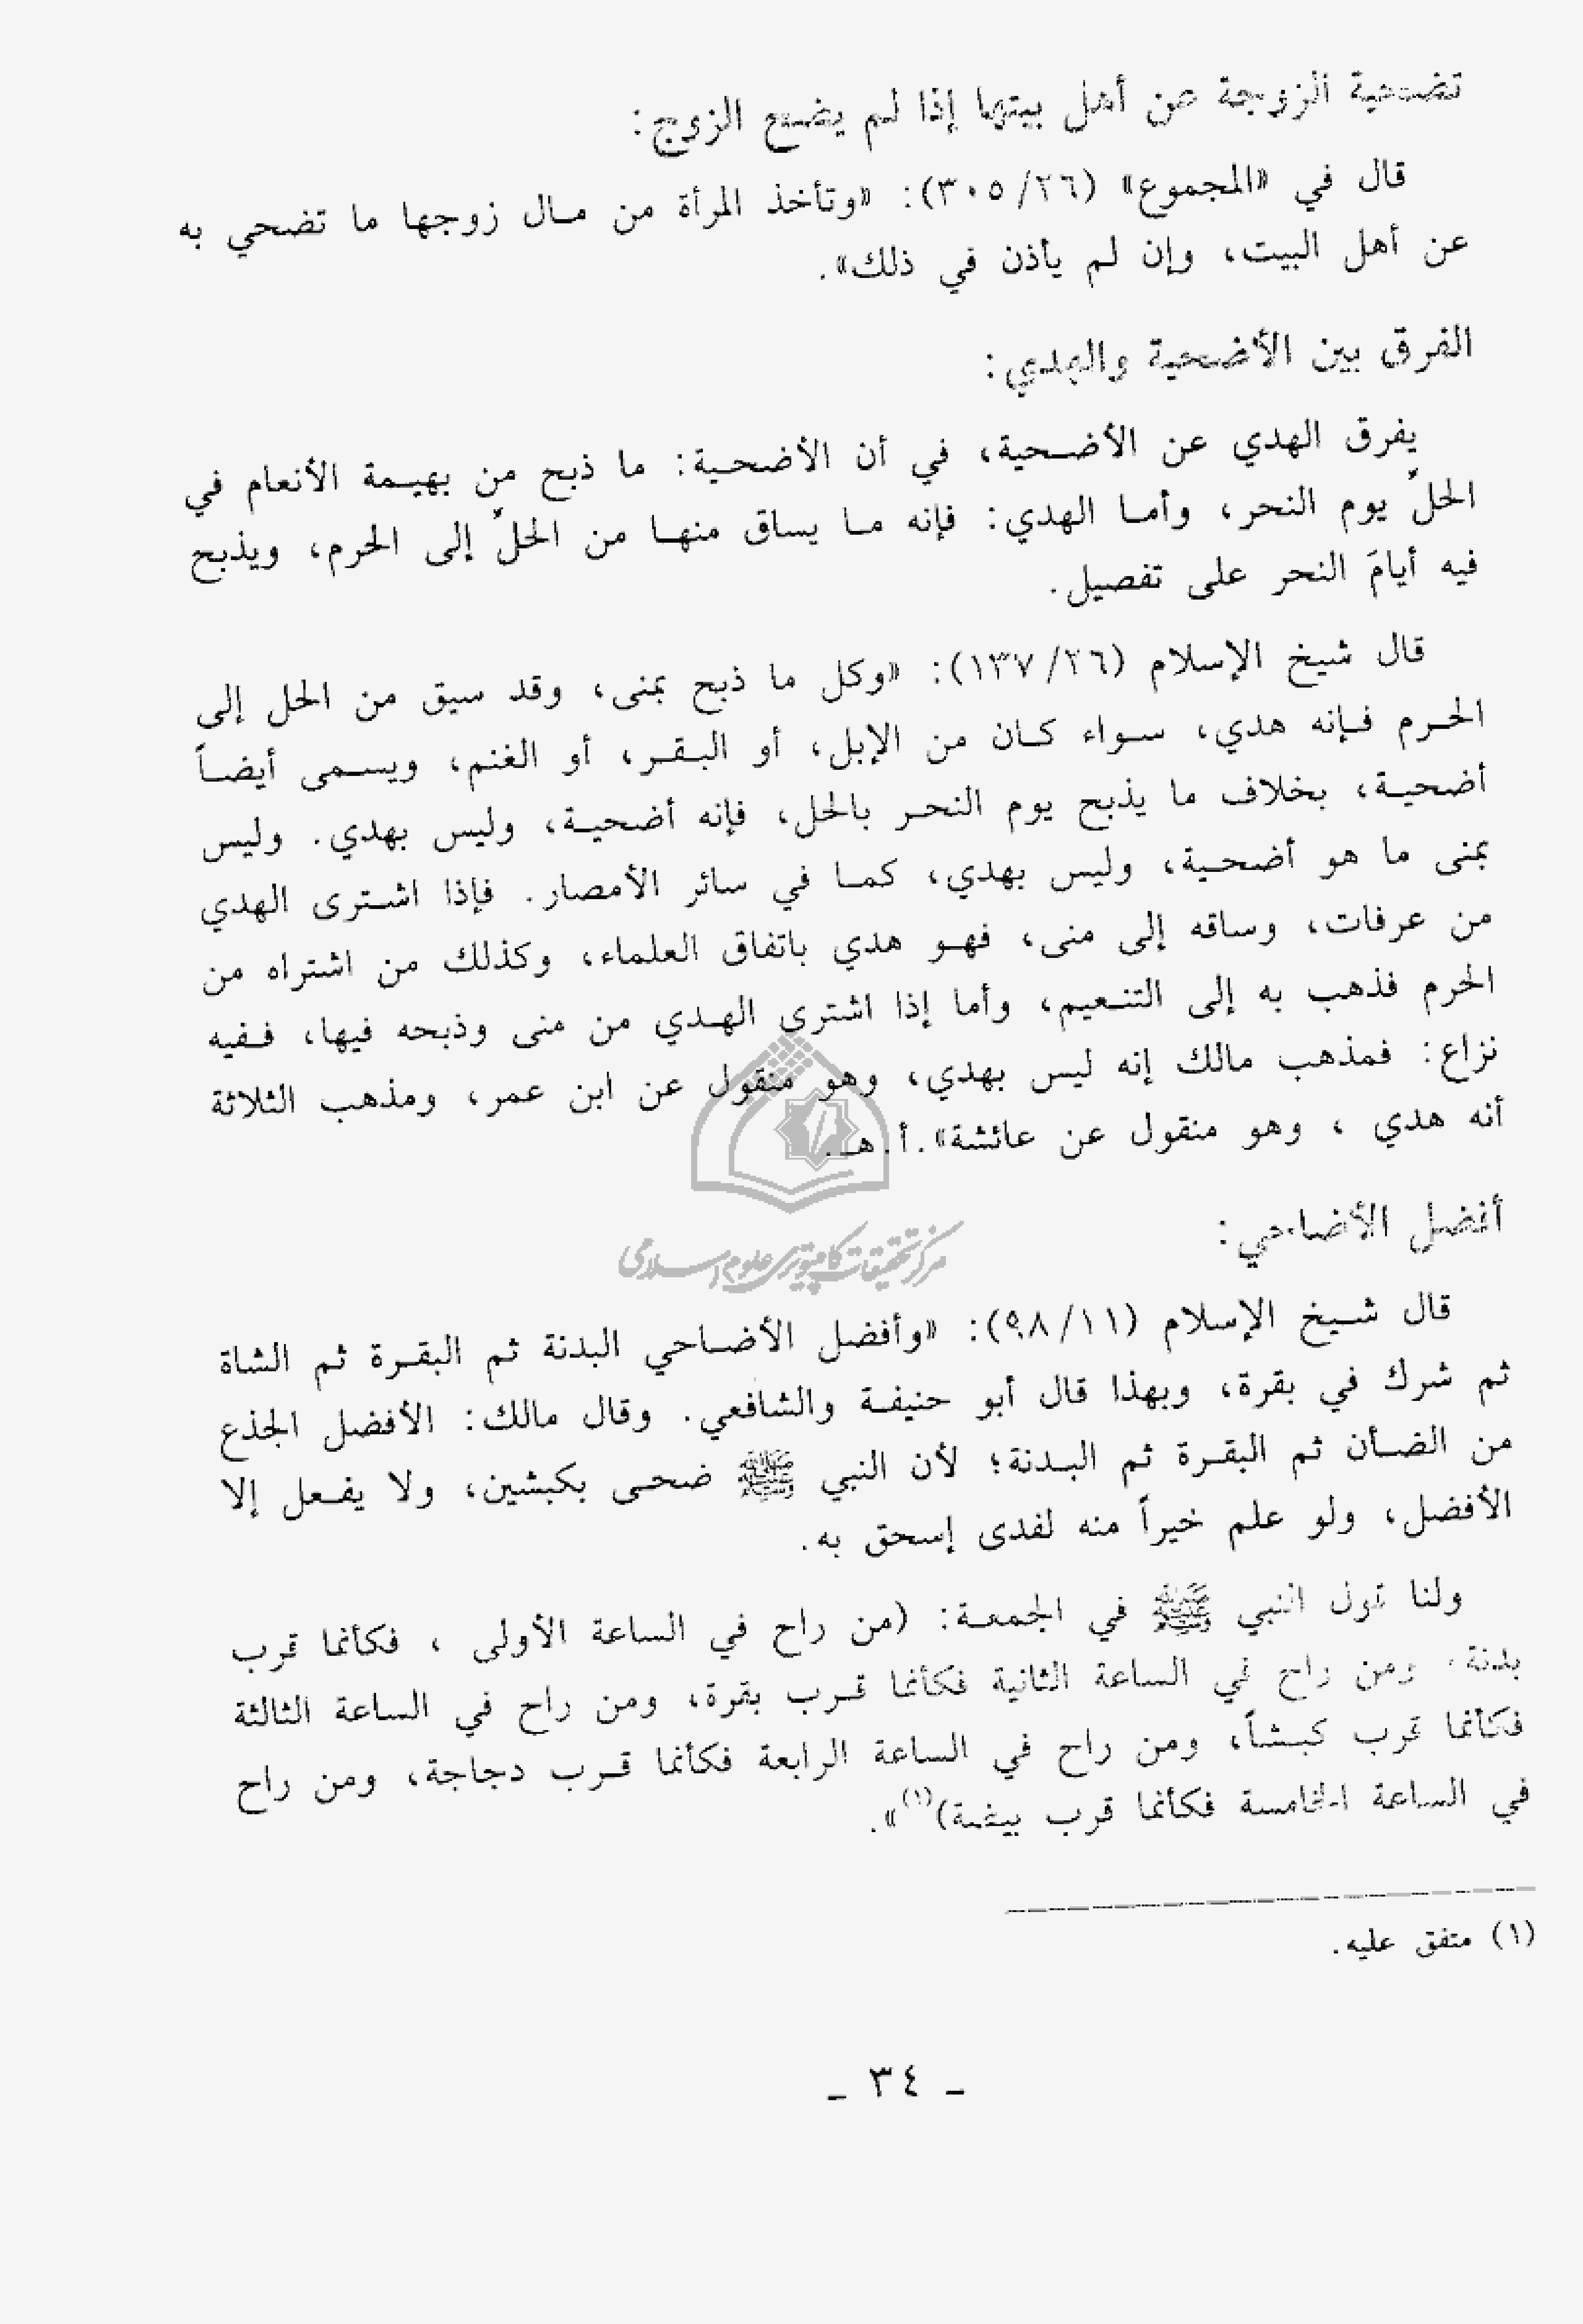 تضحية الزوجة عن أهل بيتها إذا لم يضح الزوج:
قال في «المجموع» (٢٦/ ٣٠٥): «وتأخذ المرأة من مال زوجها ما تضحي به
عن أهل البيت، وإن لم يأذن في ذلك».
الفرق بين الأضحية والهدي:
يفرق الهدي عن الأضحية، في أن الأضحية: ما ذبح من بهيمة الأنعام في
الحلِّ يوم النحر، وأما الهدي: فإنه ما يساق منها من الحلِّ إلى الحرم، ويذبح
فيه أيامَ النحر على تفصيل.
قال شيخ الإسلام (٢٦/ ١٣٧): «وكل ما ذبح بمنى، وقد سيق من الحل إلى
الحرم فإنه هدي، سواء كان من الإبل، أو البقر، أو الغنم، ويسمى أيضاً
أضحية، بخلاف ما يذبح يوم النحر بالحل، فإنه أضحية، وليس بهدي. وليس
بمنى ما هو أضحية، وليس بهدي، كما في سائر الأمصار. فإذا اشترى الهدي
من عرفات، وساقه إلى منى، فهو هدي باتفاق العلماء، وكذلك من اشتراه من
الحرم فذهب به إلى التنعيم، وأما إذا اشترى الهدي من منى وذبحه فيها، ففيه
نزاع: فمذهب مالك إنه ليس بهدي، وهو منقول عن ابن عمر، ومذهب الثلاثة
أنه هدي ، وهو منقول عن عائشة».أ.هـ.
مركز تحقيقات كامپيوترى علوم اسلامى
أفضل الأضاحي:
قال شيخ الإسلام (١١/ ٩٨): «وأفضل الأضاحي البدنة ثم البقرة ثم الشاة
ثم شرك في بقرة، وبهذا قال أبو حنيفة والشافعي. وقال مالك: الأفضل الجذع
من الضأن ثم البقرة ثم البدنة؛ لأن النبي ﷺ ضحى بكبشين، ولا يفعل إلا
الأفضل، ولو علم خيراً منه لفدى إسحق به.
ولنا قول النبي ﷺ في الجمعة: (من راح في الساعة الأولى ، فكأنما قرب
بدنة، ومن راح في الساعة الثانية فكأنما قرب بقرة، ومن راح في الساعة الثالثة
فكأنما قرب كبشاً، ومن راح في الساعة الرابعة فكأنما قرب دجاجة، ومن راح
في الساعة الخامسة فكأنما قرب بيضة)(١)».
(١) متفق عليه.
ـ ٣٤ ـ